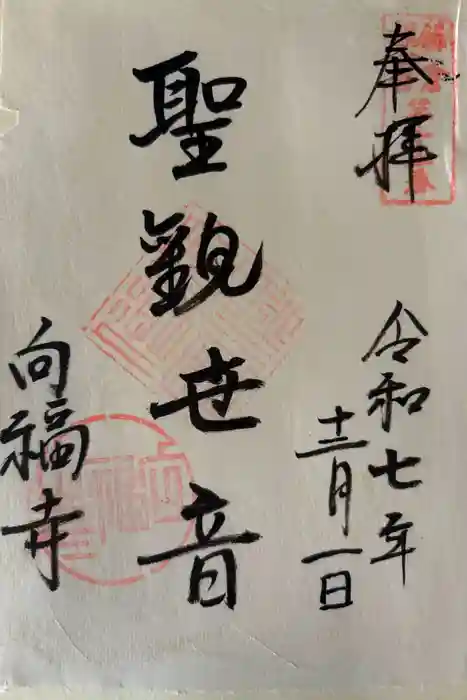 奉拝
令和七年
十二月一日
聖観世音
向福寺